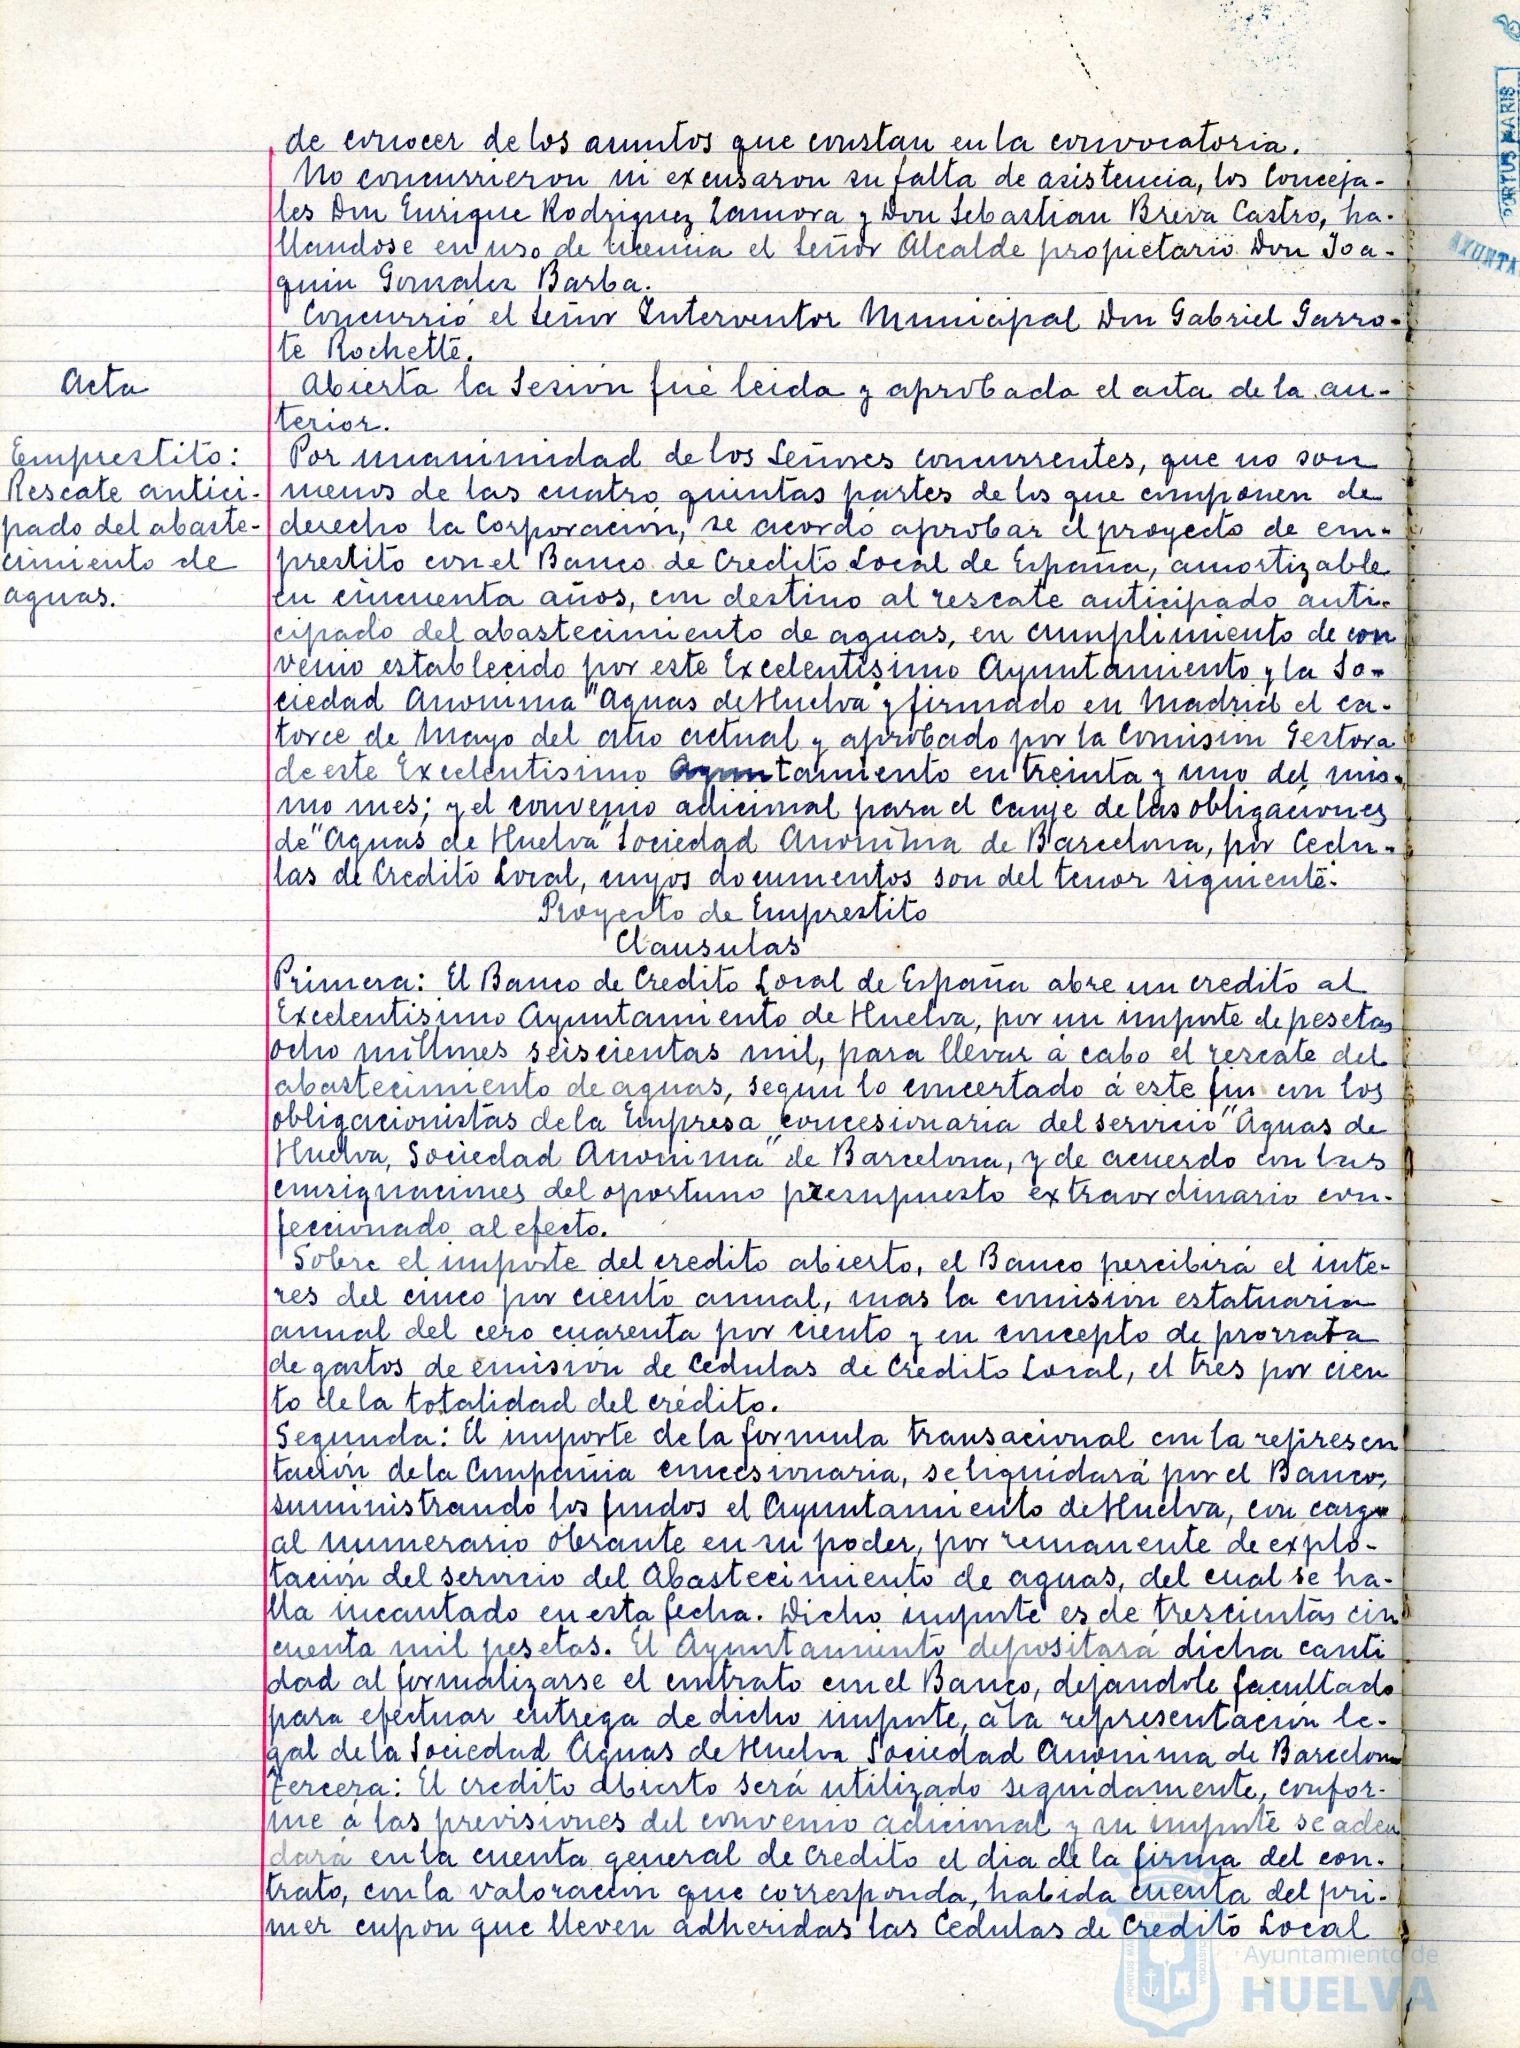 de conocer de los asuntos que constan en la convocatoria.
No concurrieron ni excusaron su falta de asistencia, los Conceja-
les Don Enrique Rodriguez Zamora y Don Sebastian Breva Castro, ha-
llandose en uso de licencia el Señor Alcalde propietario Don Joa-
quin Gonzalez Barba.
Concurrió el Señor Interventor Municipal Don Gabriel Garro-
te Rochette.
Acta
Abierta la Sesion fué leida y aprobada el acta de la an-
terior.
Emprestito:
Rescate antici-
pado del abaste-
cimiento de
aguas.
Por unanimidad de los Señores concurrentes, que no son
menos de las cuatro quintas partes de los que componen de
derecho la Corporación, se acordó aprobar el proyecto de em-
prestito con el Banco de Credito Local de España, amortizable
en cincuenta años, con destino al rescate anticipado anti-
cipado del abastecimiento de aguas, en cumplimiento de con
venio establecido por este Excelentisimo Ayuntamiento y la So-
ciedad Anonima "Aguas de Huelva" y firmado en Madrid el ca-
torce de Mayo del año actual y aprobado por la Comision Gestora
de este Excelentisimo Ayuntamiento en treinta y uno del mis-
mo mes; y el convenio adicional para el canje de las obligaciones
de "Aguas de Huelva" Sociedad Anonima de Barcelona, por Cedu-
las de Credito Local, cuyos documentos son del tenor siguiente:
Proyecto de Emprestito
Clausulas
Primera: El Banco de Credito Local de España abre un credito al
Excelentisimo Ayuntamiento de Huelva, por un importe de pesetas
ocho millones seiscientas mil, para llevar á cabo el rescate del
abastecimiento de aguas, segun lo concertado á este fin con los
obligacionistas de la Empresa concesionaria del servicio "Aguas de
Huelva, Sociedad Anonima" de Barcelona, y de acuerdo con las
consignaciones del oportuno presupuesto extraordinario con-
feccionado al efecto.
Sobre el importe del credito abierto, el Banco percibirá el inte-
res del cinco por ciento anual, mas la comision estatuaria
anual del cero cuarenta por ciento y en concepto de prorrata
de gastos de emisión de Cedulas de Credito Local, el tres por cien
to de la totalidad del crédito.
Segunda: El importe de la formula transacional con la represen
tación de la Compañia concesionaria, se liquidará por el Banco,
suministrando los fondos el Ayuntamiento de Huelva, con cargo
al numerario obrante en su poder, por remanente de explo-
tación del servicio del Abastecimiento de aguas, del cual se ha-
lla incautado en esta fecha. Dicho importe es de trescientas cin
cuenta mil pesetas. El Ayuntamiento depositará dicha canti
dad al formalizarse el contrato con el Banco, dejandole facultado
para efectuar entrega de dicho importe, á la representación le-
gal de la Sociedad Aguas de Huelva Sociedad Anonima de Barcelona
Tercera: El credito abierto será utilizado seguidamente, confor-
me a las previsiones del convenio adicional y su importe se adeu
dará en la cuenta general de Credito el dia de la firma del con-
trato, con la valoracion que corresponda, habida cuenta del pri-
mer cupon que lleven adheridas las Cedulas de Credito Local
PORTUS MARIS
AYUNTA
Ayuntamiento de
HUELVA